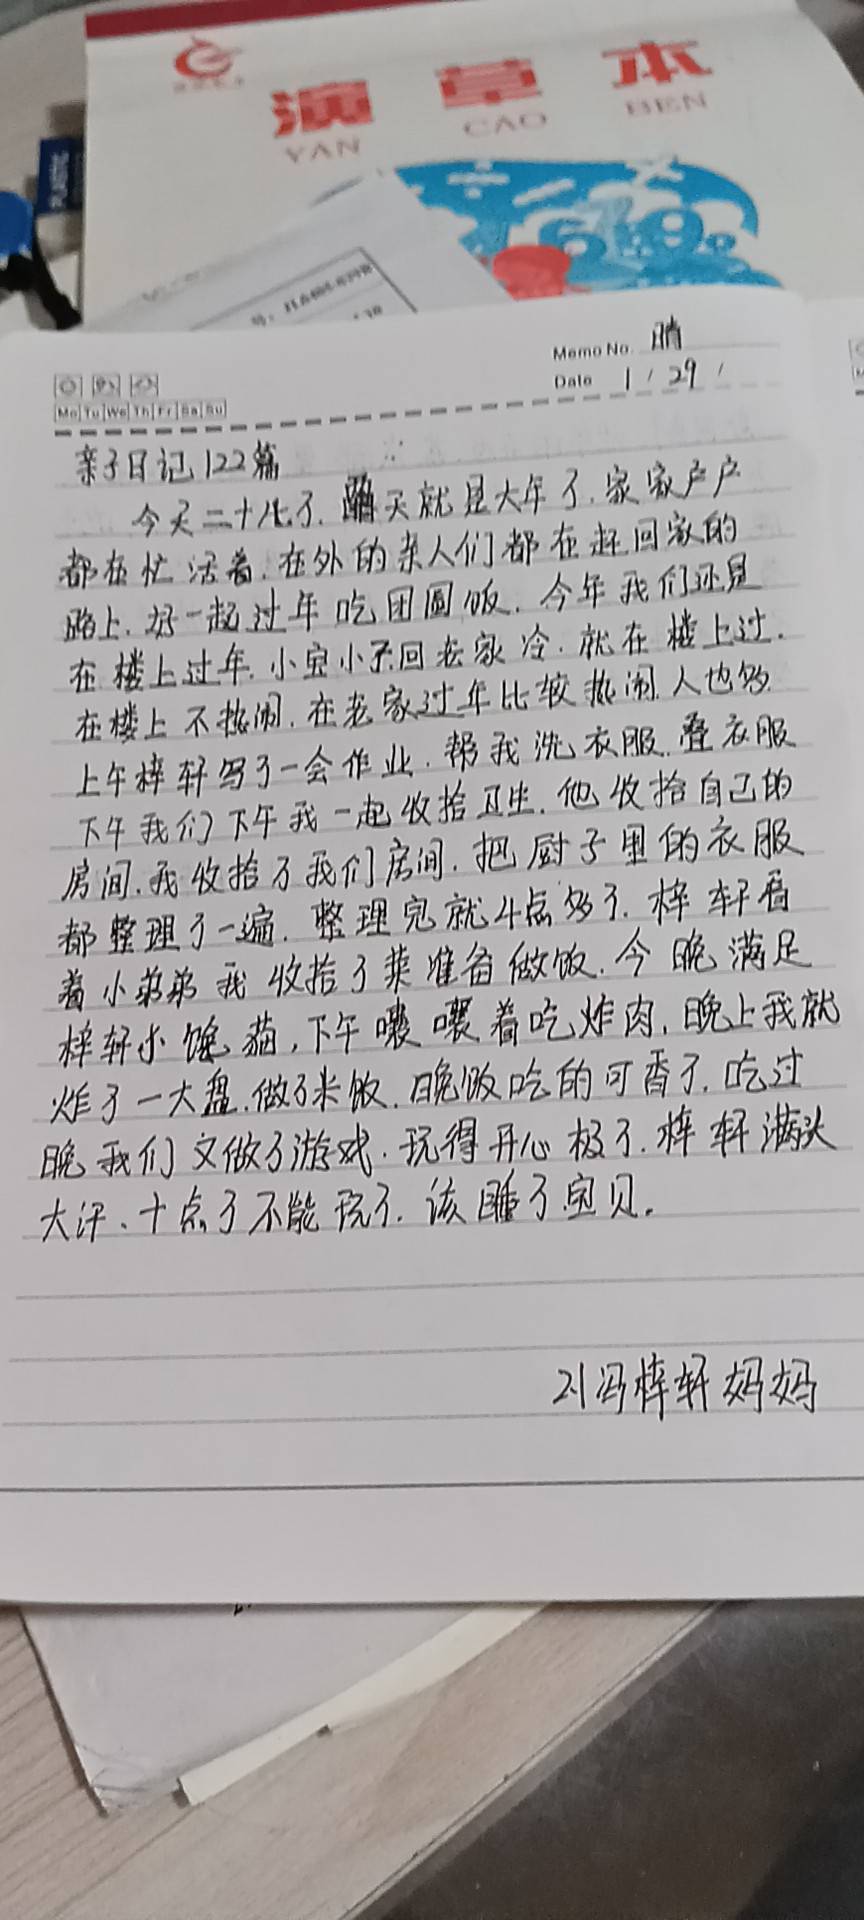 演草本
YAN CAO BEN
PLASTIC
Memo No. 晴
Mo Tu We Th Fr Sa Su
Date 1 / 29 /
亲子日记122篇
今天二十八了.天就是大年了.家家户户
都在忙活着.在外的亲人们都在赶回家的
路上.好一起过年吃团圆饭.今年我们还是
在楼上过年.小宝小不回老家冷.就在楼上过.
在楼上不热闹.在老家过年比较热闹人也多
上午梓轩写了一会作业.帮我洗衣服.叠衣服
下午我们下午我一起收拾卫生.他收拾自己的
房间.我收拾了我们房间.把厨子里的衣服
都整理了一遍.整理完就4点多了.梓轩看
着小弟弟我收拾了菜准备做饭.今晚满足
梓轩小馋猫,下午嚷嚷着吃炸肉,晚上我就
炸了一大盘.做了米饭.晚饭吃的可香了.吃过
晚我们又做了游戏.玩得开心极了.梓轩满头
大汗、十点了不能玩了.该睡了宝贝.
刘冯梓轩妈妈